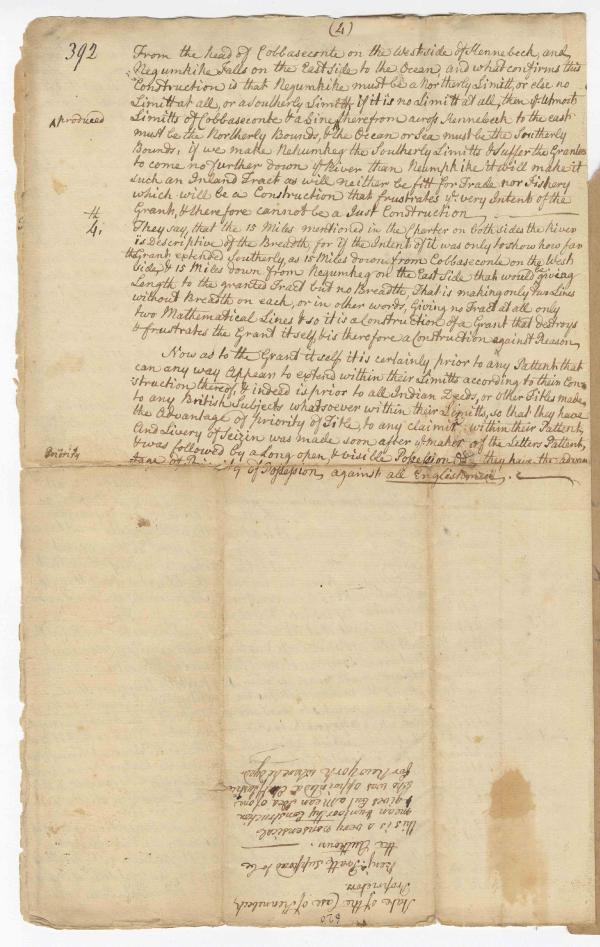 (4)
392
From the head of Cobbaseconte on the West side of Kennebeck, and
Negumkike Falls on the East Side to the Ocean, and what confirms this
Construction is that Negumkike must be a Northerly Limitt, or else no
Limitt at all, or a Southerly Limitt, if it is no Limitt at all, then ye utmost
Limitts of Cobbaseconte & a Line therefrom acrost Kennebeck to the east
^ produced
must be the Northerly Bounds, & the Ocean or Sea must be the Southerly
Bounds, if we make Nehumkeg the Southerly Limitts & Suffer the Grantees
to come no further down ye River than Neumphike it will make it
such an Inland Tract as will neither be fitt for Trade nor Fishery
which will be a Construction that frustrates ye very Intent of the
Grant, & therefore cannot be a Just Construction
4.
They say, that the 15 Miles mentioned in the Charter on both sides the River
is Descriptive of the Breadth, for if the Intent of it was only to show how far
the Grant extended Southerly as 15 Miles down from Cobbaseconte on the West
side, & 15 Miles down from Negumkeg on the East Side that would be giving
Length to the granted Tract but no Breadth, That is making only two Lines
without Breadth on each, or in other words, Giving no Tract at all only
two Mathematical Lines & so it is a Construction of a Grant that destroys
& frustrates the Grant itself & is therefore a Construction against Reason
Now as to the Grant itself it is certainly prior to any Pattent that
can any way Appear to extend within their Limitts according to their Con
struction thereof, & indeed is prior to all Indian Deeds, or other Titles made
to any British Subjects whatsoever within their Limitts, so that they have
the Advantage of priority of Title, to any claimer within their Pattent,
And Livery of Seizin was made soon after ye making of the Letters Pattent,
& was followed by a Long open, & visible Possession & they have the advan
Priority
tage of of Possession, against all Englishmen.
State of the Case of Kennebeck
Proprietors
Benj: Pratt supposed to be
the Authour.
this is a very nonsensical
mean unworthy Construction
& gives but a Mean Idea of one
who was appointed Chief Justice
for New York where he dyed
620